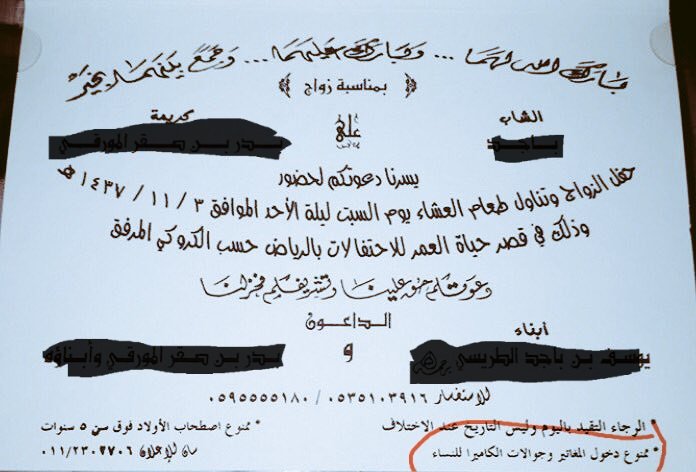 بارك الله لهما ... وبارك عليهما ... وجمع بينهما بخير
بمناسبة زواج
الشاب
على
كريمة
يسرنا دعوتكم لحضور
حفل الزواج وتناول طعام العشاء يوم السبت ليلة الأحد الموافق ٣ / ١١ / ١٤٣٧ هـ
وذلك في قصر حياة العمر للاحتفالات بالرياض حسب الكروكي المرفق
دعوتكم حق علينا وتشريفكم فخر لنا
الداعون
أبناء
و
للاستفسار ٠٥٣٥١٠٣٩١٦ / ٠٥٩٥٥٥٥١٨٠
* الرجاء التقيد باليوم وليس التاريخ عند الاختلاف
* ممنوع اصطحاب الأولاد فوق سن ٥ سنوات
* ممنوع دخول المغاتير وجوالات الكاميرا للنساء
للإعلان ٠١١/٢٣٠٧٧٠٦